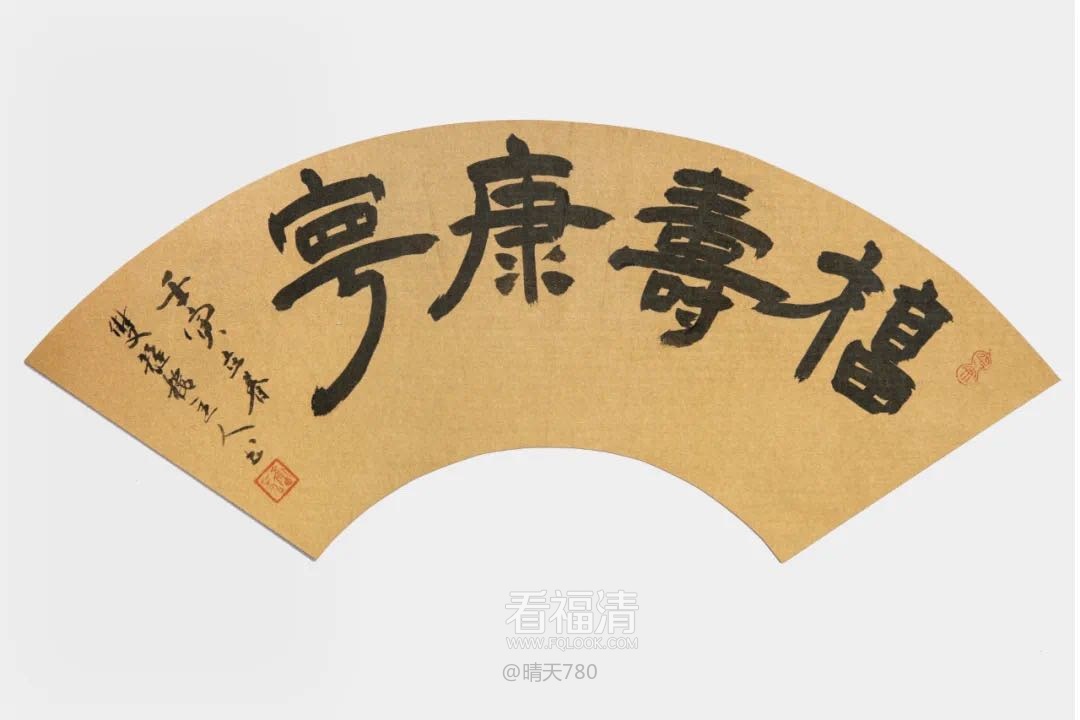 福壽康寧
壬寅立春
雙桂樓主人書
看福清
WWW.FQLOOK.COM
@晴天780